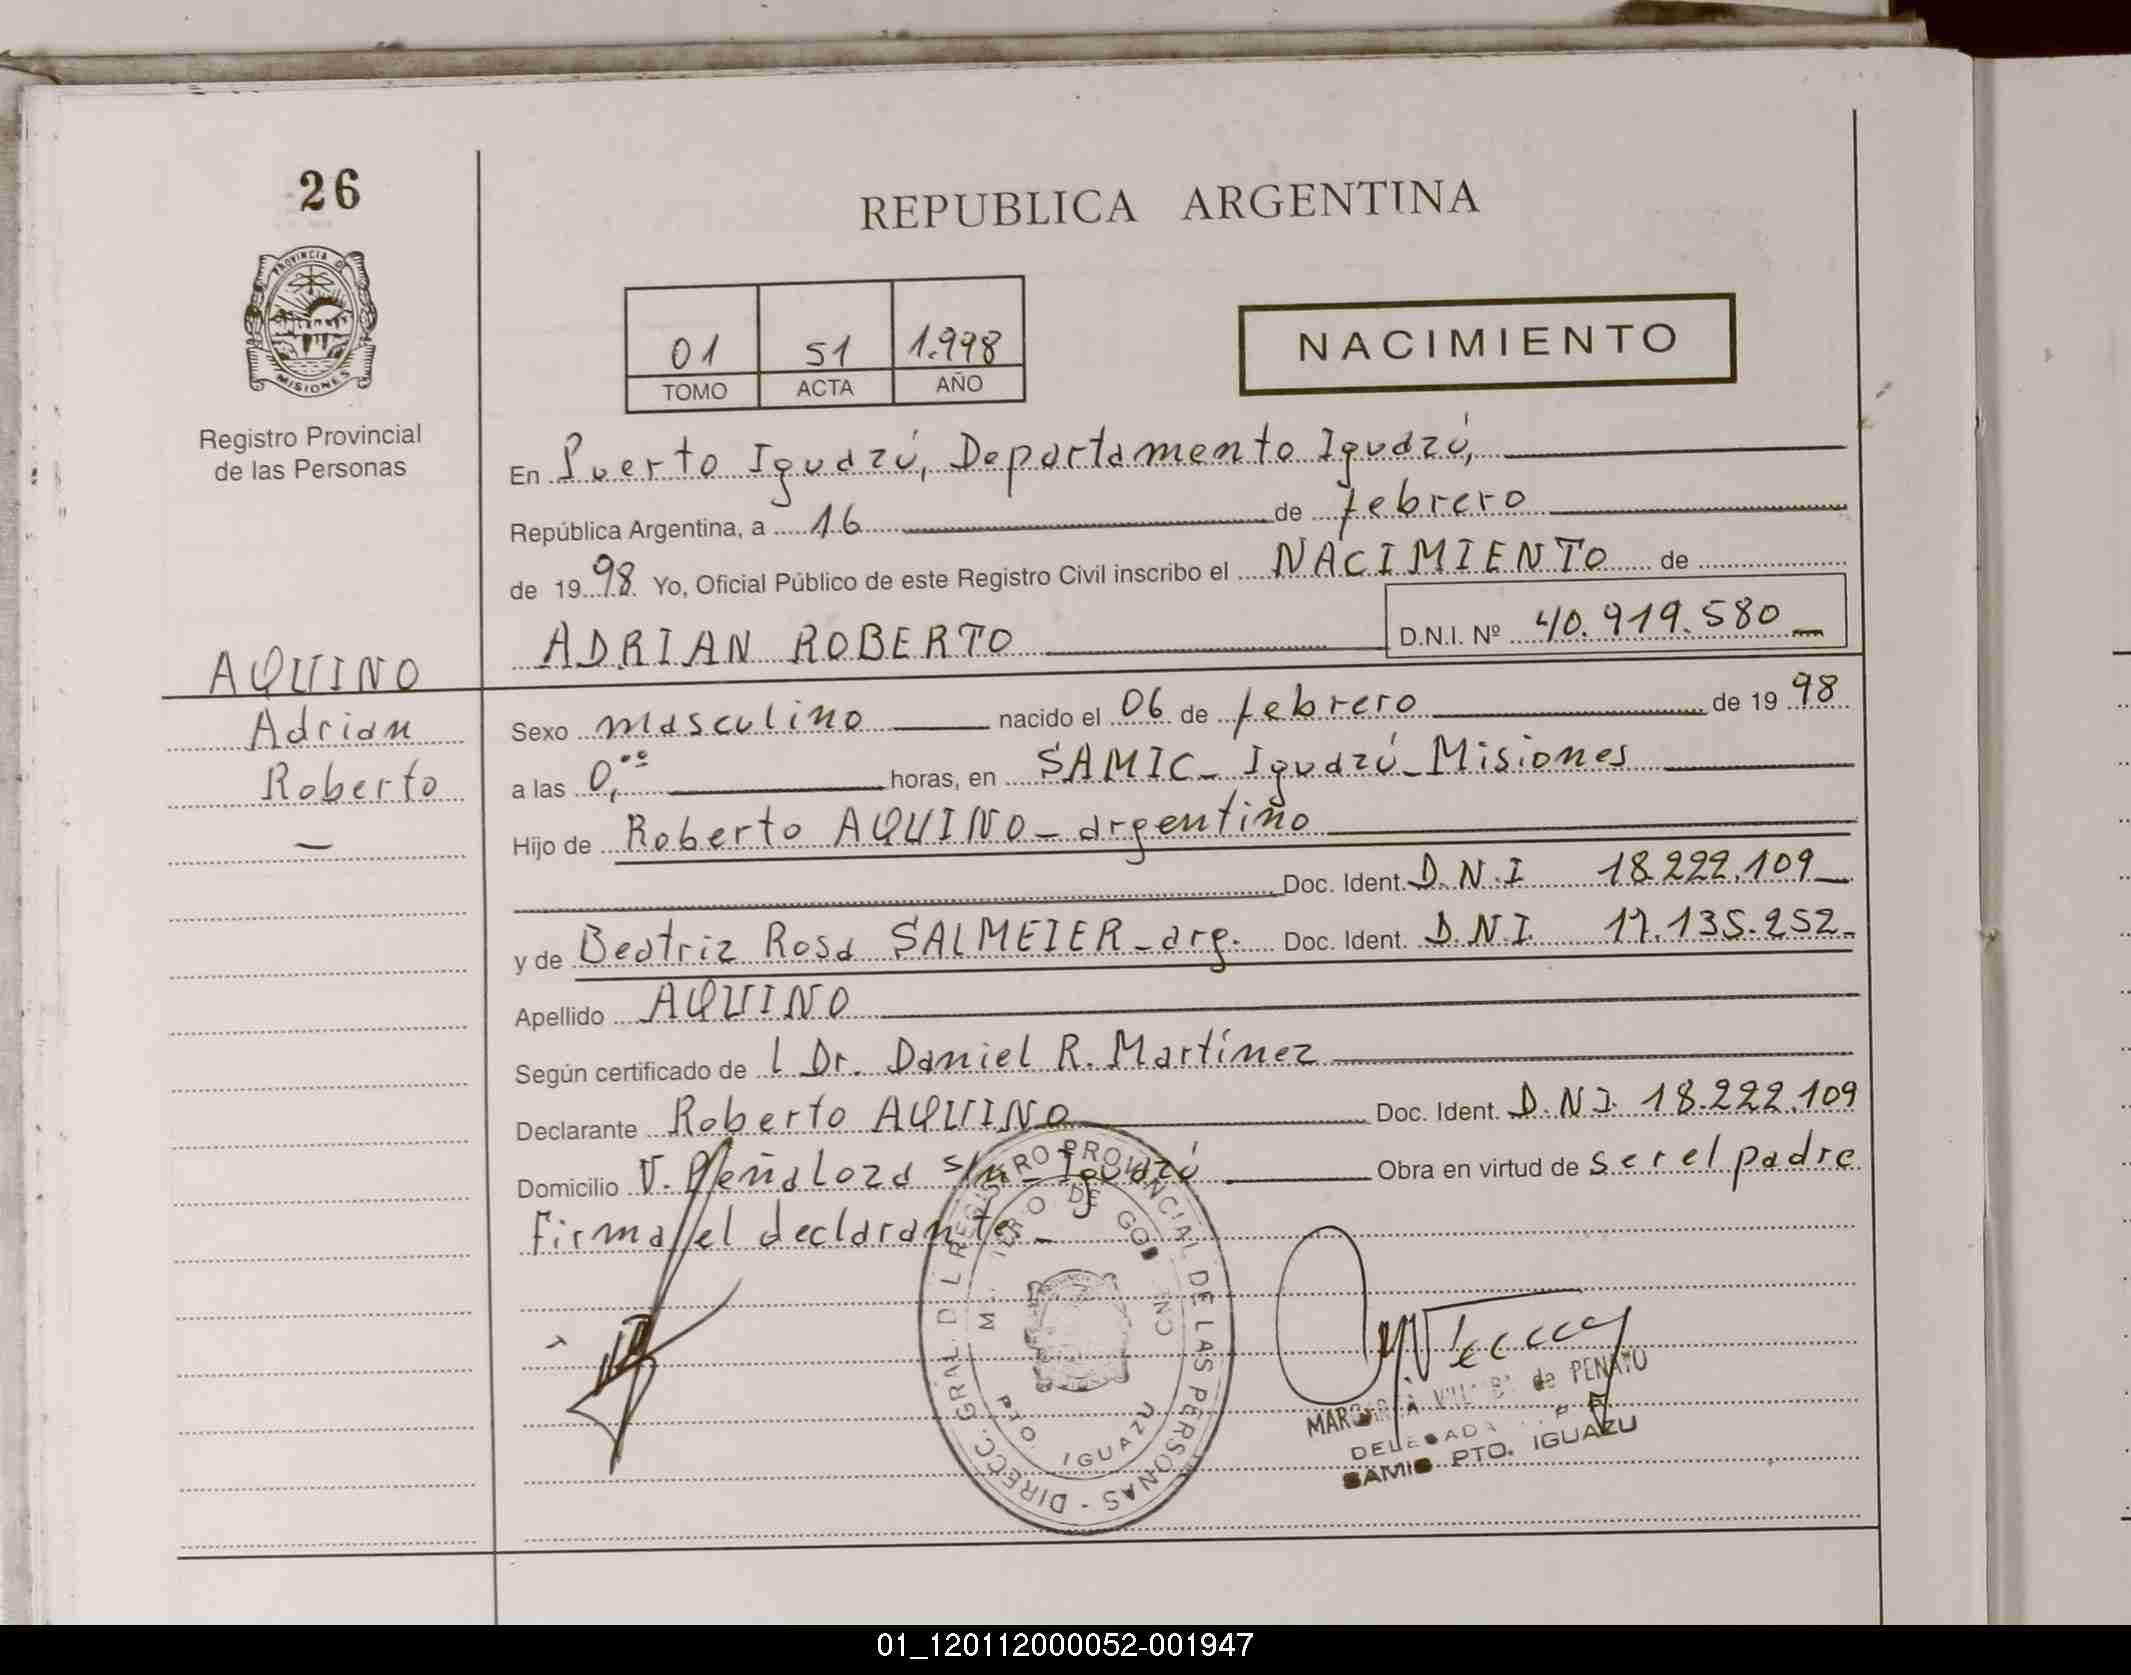 26
REPUBLICA ARGENTINA
PROVINCIA DE
MISIONES
Registro Provincial
de las Personas
01 51 1.998
TOMO ACTA AÑO
NACIMIENTO
En Puerto Iguazú, Departamento Iguazú,
República Argentina, a 16 de febrero
de 1998 Yo, Oficial Público de este Registro Civil inscribo el NACIMIENTO de
ADRIAN ROBERTO D.N.I. Nº 40.919.580
AQUINO
Adrian
Roberto
Sexo masculino nacido el 06 de febrero de 1998
a las 0,00 horas, en SAMIC - Iguazú - Misiones
Hijo de Roberto AQUINO - argentino
Doc. Ident. D.N.I 18.222.109
y de Beatriz Rosa SALMEIER - arg. Doc. Ident. D.N.I. 17.135.252-
Apellido AQUINO
Según certificado de l Dr. Daniel R. Martínez
Declarante Roberto AQUINO Doc. Ident. D.N.I. 18.222.109
Domicilio V. Peñaloza s/n - Iguazú Obra en virtud de ser el padre
Firma el declarante -
DIRECC. GRAL. DEL REGISTRO PROVINCIAL DE LAS PERSONAS -
PTO. IGUAZU
de PENAYO
DELEGADA
SAMIC PTO. IGUAZU
01_120112000052-001947